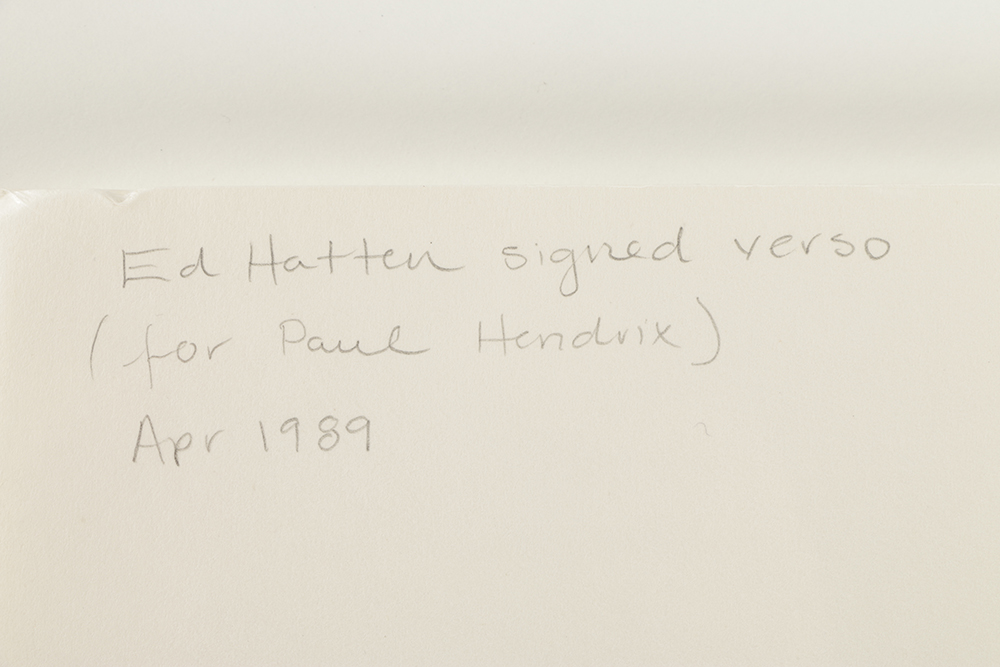 Ed Hatten signed verso
(for Paul Hendrix)
Apr 1989